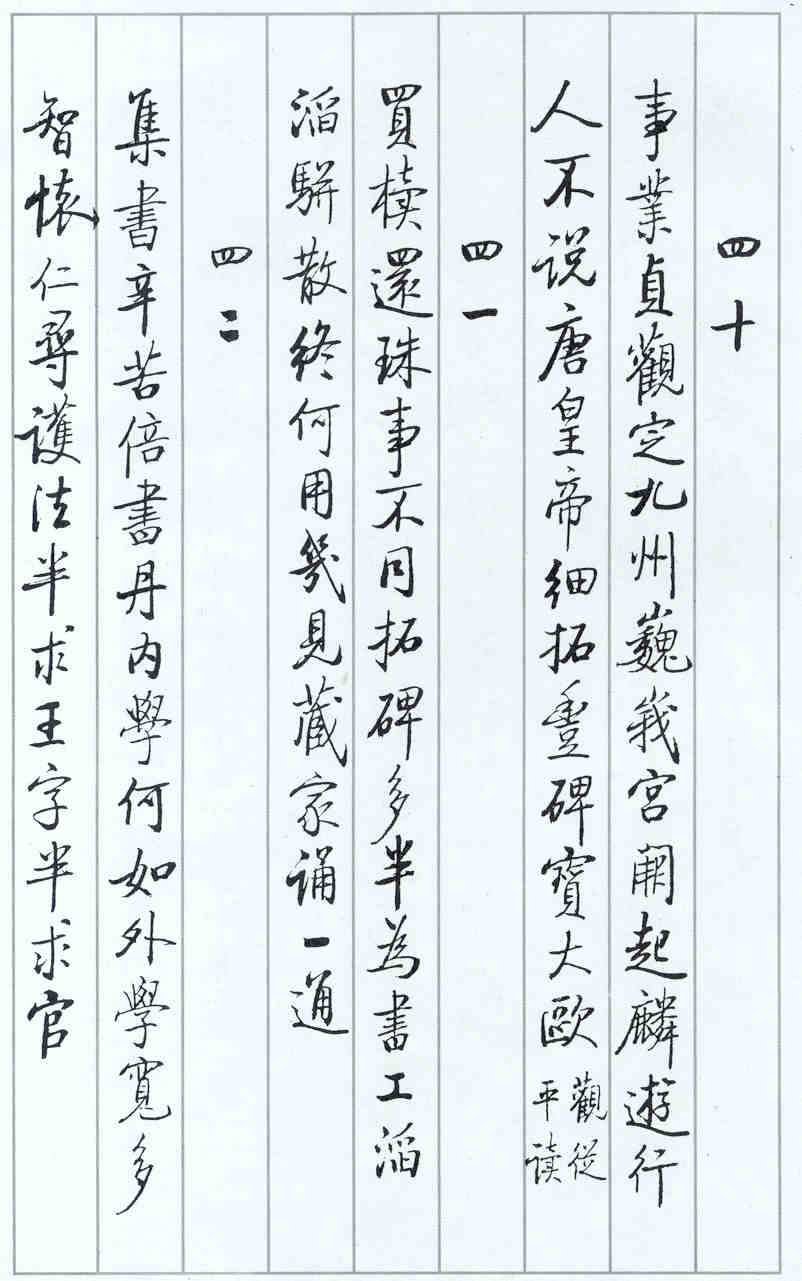 四十
事業貞觀定九州巍峩宮闕起麟遊行
人不说唐皇帝细拓豐碑寶大歐觀從平读
四一
買櫝還珠事不同拓碑多半為書工滔
滔駢散終何用幾見藏家誦一通
四二
集書辛苦倍書丹内學何如外學寬多
智懷仁尋護法半求王字半求官